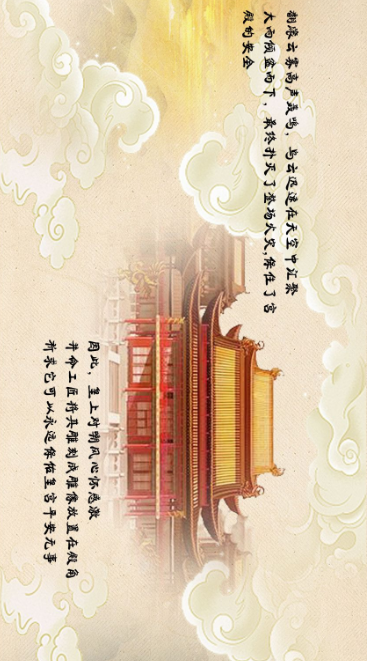 翻滚云雾高声轰鸣，乌云迅速在天空中汇聚
大雨倾盆而下，最终扑灭了整场火灾,保住了宫
殿的安全
因此，皇上对嘲风心怀感激
并命工匠将其雕刻成雕像放置在殿角
祈求它可以永远保佑皇宫平安无事